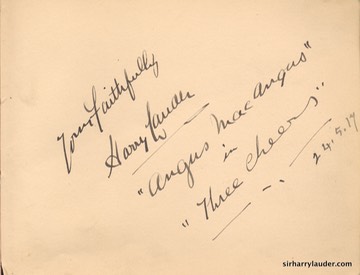 Yours Faithfully
Harry Lauder
"Angus MacAngus"
in
"Three Cheers"
24.5.17
sirharrylauder.com